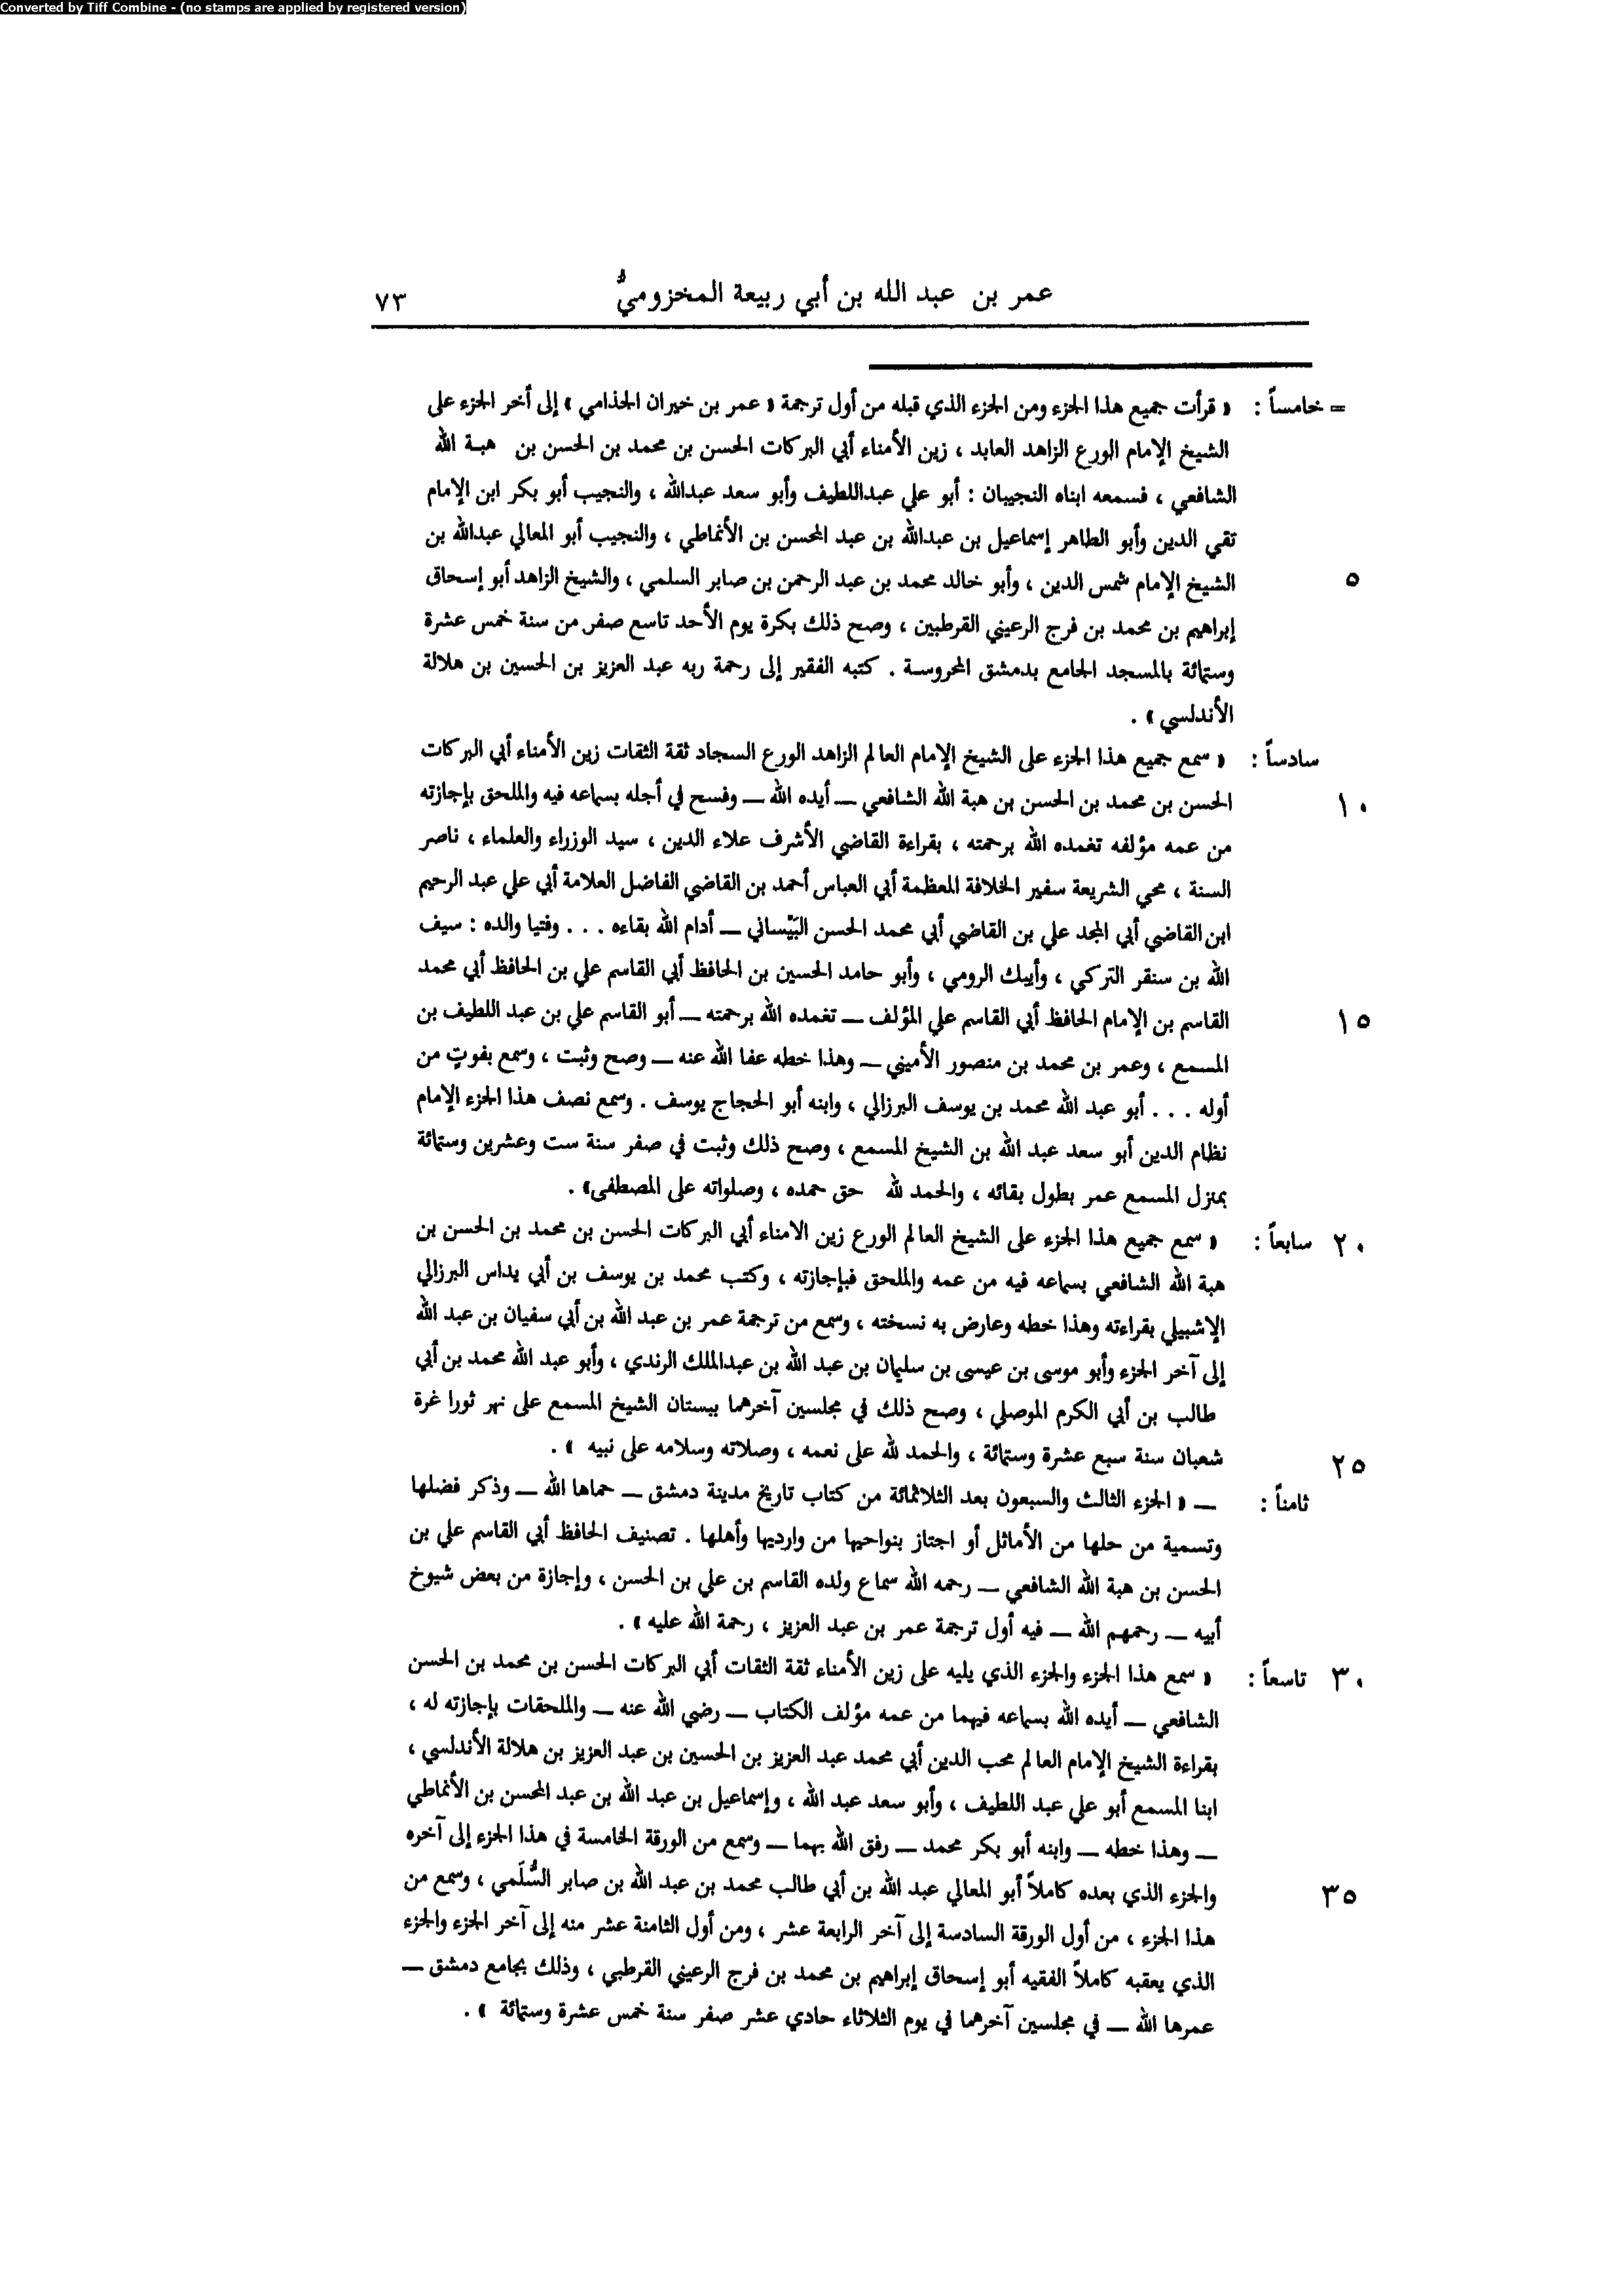 Converted by Tiff Combine - (no stamps are applied by registered version)
عمر بن عبد الله بن أبي ربيعة المخزوميُّ ٧٣
= خامساً : « قرأت جميع هذا الجزء ومن الجزء الذي قبله من أول ترجمة « عمر بن خيران الجذامي » إلى أخر الجزء على
الشيخ الإمام الورع الزاهد العابد ، زين الأمناء أبي البركات الحسن بن محمد بن الحسن بن هبة الله
الشافعي ، فسمعه ابناه النجيبان : أبو علي عبداللطيف وأبو سعد عبدالله ، والنجيب أبو بكر ابن الإمام
تقي الدين وأبو الطاهر إسماعيل بن عبدالله بن عبد المحسن بن الأنماطي ، والنجيب أبو المعالي عبدالله بن
٥ الشيخ الإمام شمس الدين ، وأبو خالد محمد بن عبد الرحمن بن صابر السلمي ، والشيخ الزاهد أبو إسحاق
إبراهيم بن محمد بن فرج الرعيني القرطبين ، وصح ذلك بكرة يوم الأحد تاسع صفر من سنة خمس عشرة
وستمائة بالمسجد الجامع بدمشق المحروسة . كتبه الفقير إلى رحمة ربه عبد العزيز بن الحسين بن هلالة
الأندلسي » .
سادساً : « سمع جميع هذا الجزء على الشيخ الإمام العالم الزاهد الورع السجاد ثقة الثقات زين الأمناء أبي البركات
١٠ الحسن بن محمد بن الحسن بن هبة الله الشافعي ــ أيده الله ــ وفسح في أجله بسماعه فيه والملحق بإجازته
من عمه مؤلفه تغمده الله برحمته ، بقراءة القاضي الأشرف علاء الدين ، سيد الوزراء والعلماء ، ناصر
السنة ، محي الشريعة سفير الخلافة المعظمة أبي العباس أحمد بن القاضي الفاضل العلامة أبي علي عبد الرحيم
ابن القاضي أبي المجد علي بن القاضي أبي محمد الحسن البَيْساني ــ أدام الله بقاءه . . . وفتيا والده : سيف
الله بن سنقر التركي ، وأيبك الرومي ، وأبو حامد الحسين بن الحافظ أبي القاسم علي بن الحافظ أبي محمد
١٥ القاسم بن الإمام الحافظ أبي القاسم علي المؤلف ــ تغمده الله برحمته ــ أبو القاسم علي بن عبد اللطيف بن
المسمع ، وعمر بن محمد بن منصور الأميني ــ وهذا خطه عفا الله عنه ــ وصح وثبت ، وسمع بفوتٍ من
أوله . . . أبو عبد الله محمد بن يوسف البرزالي ، وابنه أبو الحجاج يوسف . وسمع نصف هذا الجزء الإمام
نظام الدين أبو سعد عبد الله بن الشيخ المسمع ، وصح ذلك وثبت في صفر سنة ست وعشرين وستمائة
بمنزل المسمع عمر بطول بقائه ، والحمد لله حق حمده ، وصلواته على المصطفى» .
٢٠ سابعاً : « سمع جميع هذا الجزء على الشيخ العالم الورع زين الامناء أبي البركات الحسن بن محمد بن الحسن بن
هبة الله الشافعي بسماعه فيه من عمه والملحق فبإجازته ، وكتب محمد بن يوسف بن أبي يداس البرزالي
الإشبيلي بقراءته وهذا خطه وعارض به نسخته ، وسمع من ترجمة عمر بن عبد الله بن أبي سفيان بن عبد الله
إلى آخر الجزء وأبو موسى بن عيسى بن سليمان بن عبد الله بن عبدالملك الرندي ، وأبو عبد الله محمد بن أبي
طالب بن أبي الكرم الموصلي ، وصح ذلك في مجلسين آخرهما ببستان الشيخ المسمع على نهر ثورا غرة
٢٥ شعبان سنة سبع عشرة وستمائة ، والحمد لله على نعمه ، وصلاته وسلامه على نبيه » .
ثامناً : ــ « الجزء الثالث والسبعون بعد الثلاثمائة من كتاب تاريخ مدينة دمشق ــ حماها الله ــ وذكر فضلها
وتسمية من حلها من الأماثل أو اجتاز بنواحيها من وارديها وأهلها . تصنيف الحافظ أبي القاسم علي بن
الحسن بن هبة الله الشافعي ــ رحمه الله سماع ولده القاسم بن علي بن الحسن ، وإجازة من بعض شيوخ
أبيه ــ رحمهم الله ــ فيه أول ترجمة عمر بن عبد العزيز ، رحمة الله عليه » .
٣٠ تاسعاً : « سمع هذا الجزء والجزء الذي يليه على زين الأمناء ثقة الثقات أبي البركات الحسن بن محمد بن الحسن
الشافعي ــ أيده الله بسماعه فيهما من عمه مؤلف الكتاب ــ رضي الله عنه ــ والملحقات بإجازته له ،
بقراءة الشيخ الإمام العالم محب الدين أبي محمد عبد العزيز بن الحسين بن عبد العزيز بن هلالة الأندلسي ،
ابنا المسمع أبو علي عبد اللطيف ، وأبو سعد عبد الله ، وإسماعيل بن عبد الله بن عبد المحسن بن الأنماطي
ــ وهذا خطه ــ وابنه أبو بكر محمد ــ رفق الله بهما ــ وسمع من الورقة الخامسة في هذا الجزء إلى آخره
٣٥ والجزء الذي بعده كاملاً أبو المعالي عبد الله بن أبي طالب محمد بن عبد الله بن صابر السُّلَمي ، وسمع من
هذا الجزء ، من أول الورقة السادسة إلى آخر الرابعة عشر ، ومن أول الثامنة عشر منه إلى آخر الجزء والجزء
الذي يعقبه كاملاً الفقيه أبو إسحاق إبراهيم بن محمد بن فرج الرعيني القرطبي ، وذلك بجامع دمشق ــ
عمرها الله ــ في مجلسين آخرهما في يوم الثلاثاء حادي عشر صفر سنة خمس عشرة وستمائة » .